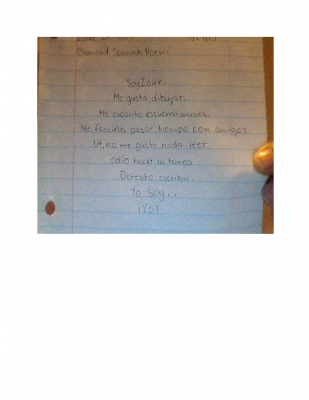 Diamond Spanish Poem
Soy Zaire.
Me gusta dibujar.
Me encanta escuchar música.
Me fascina pasar tiempo con amigos
Uf, no me gusta nada leer.
odio hacer la tarea
Detesto escribir.
Yo soy...
¡Yo!